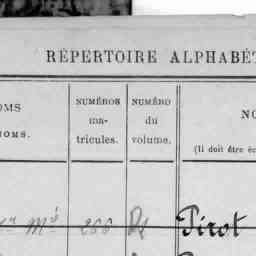 RÉPERTOIRE ALPHABÉT
OMS
NOMS.
NUMÉROS
ma-
tricules.
NUMÉRO
du
volume.
NO
(Il doit être éc
266 Pirot